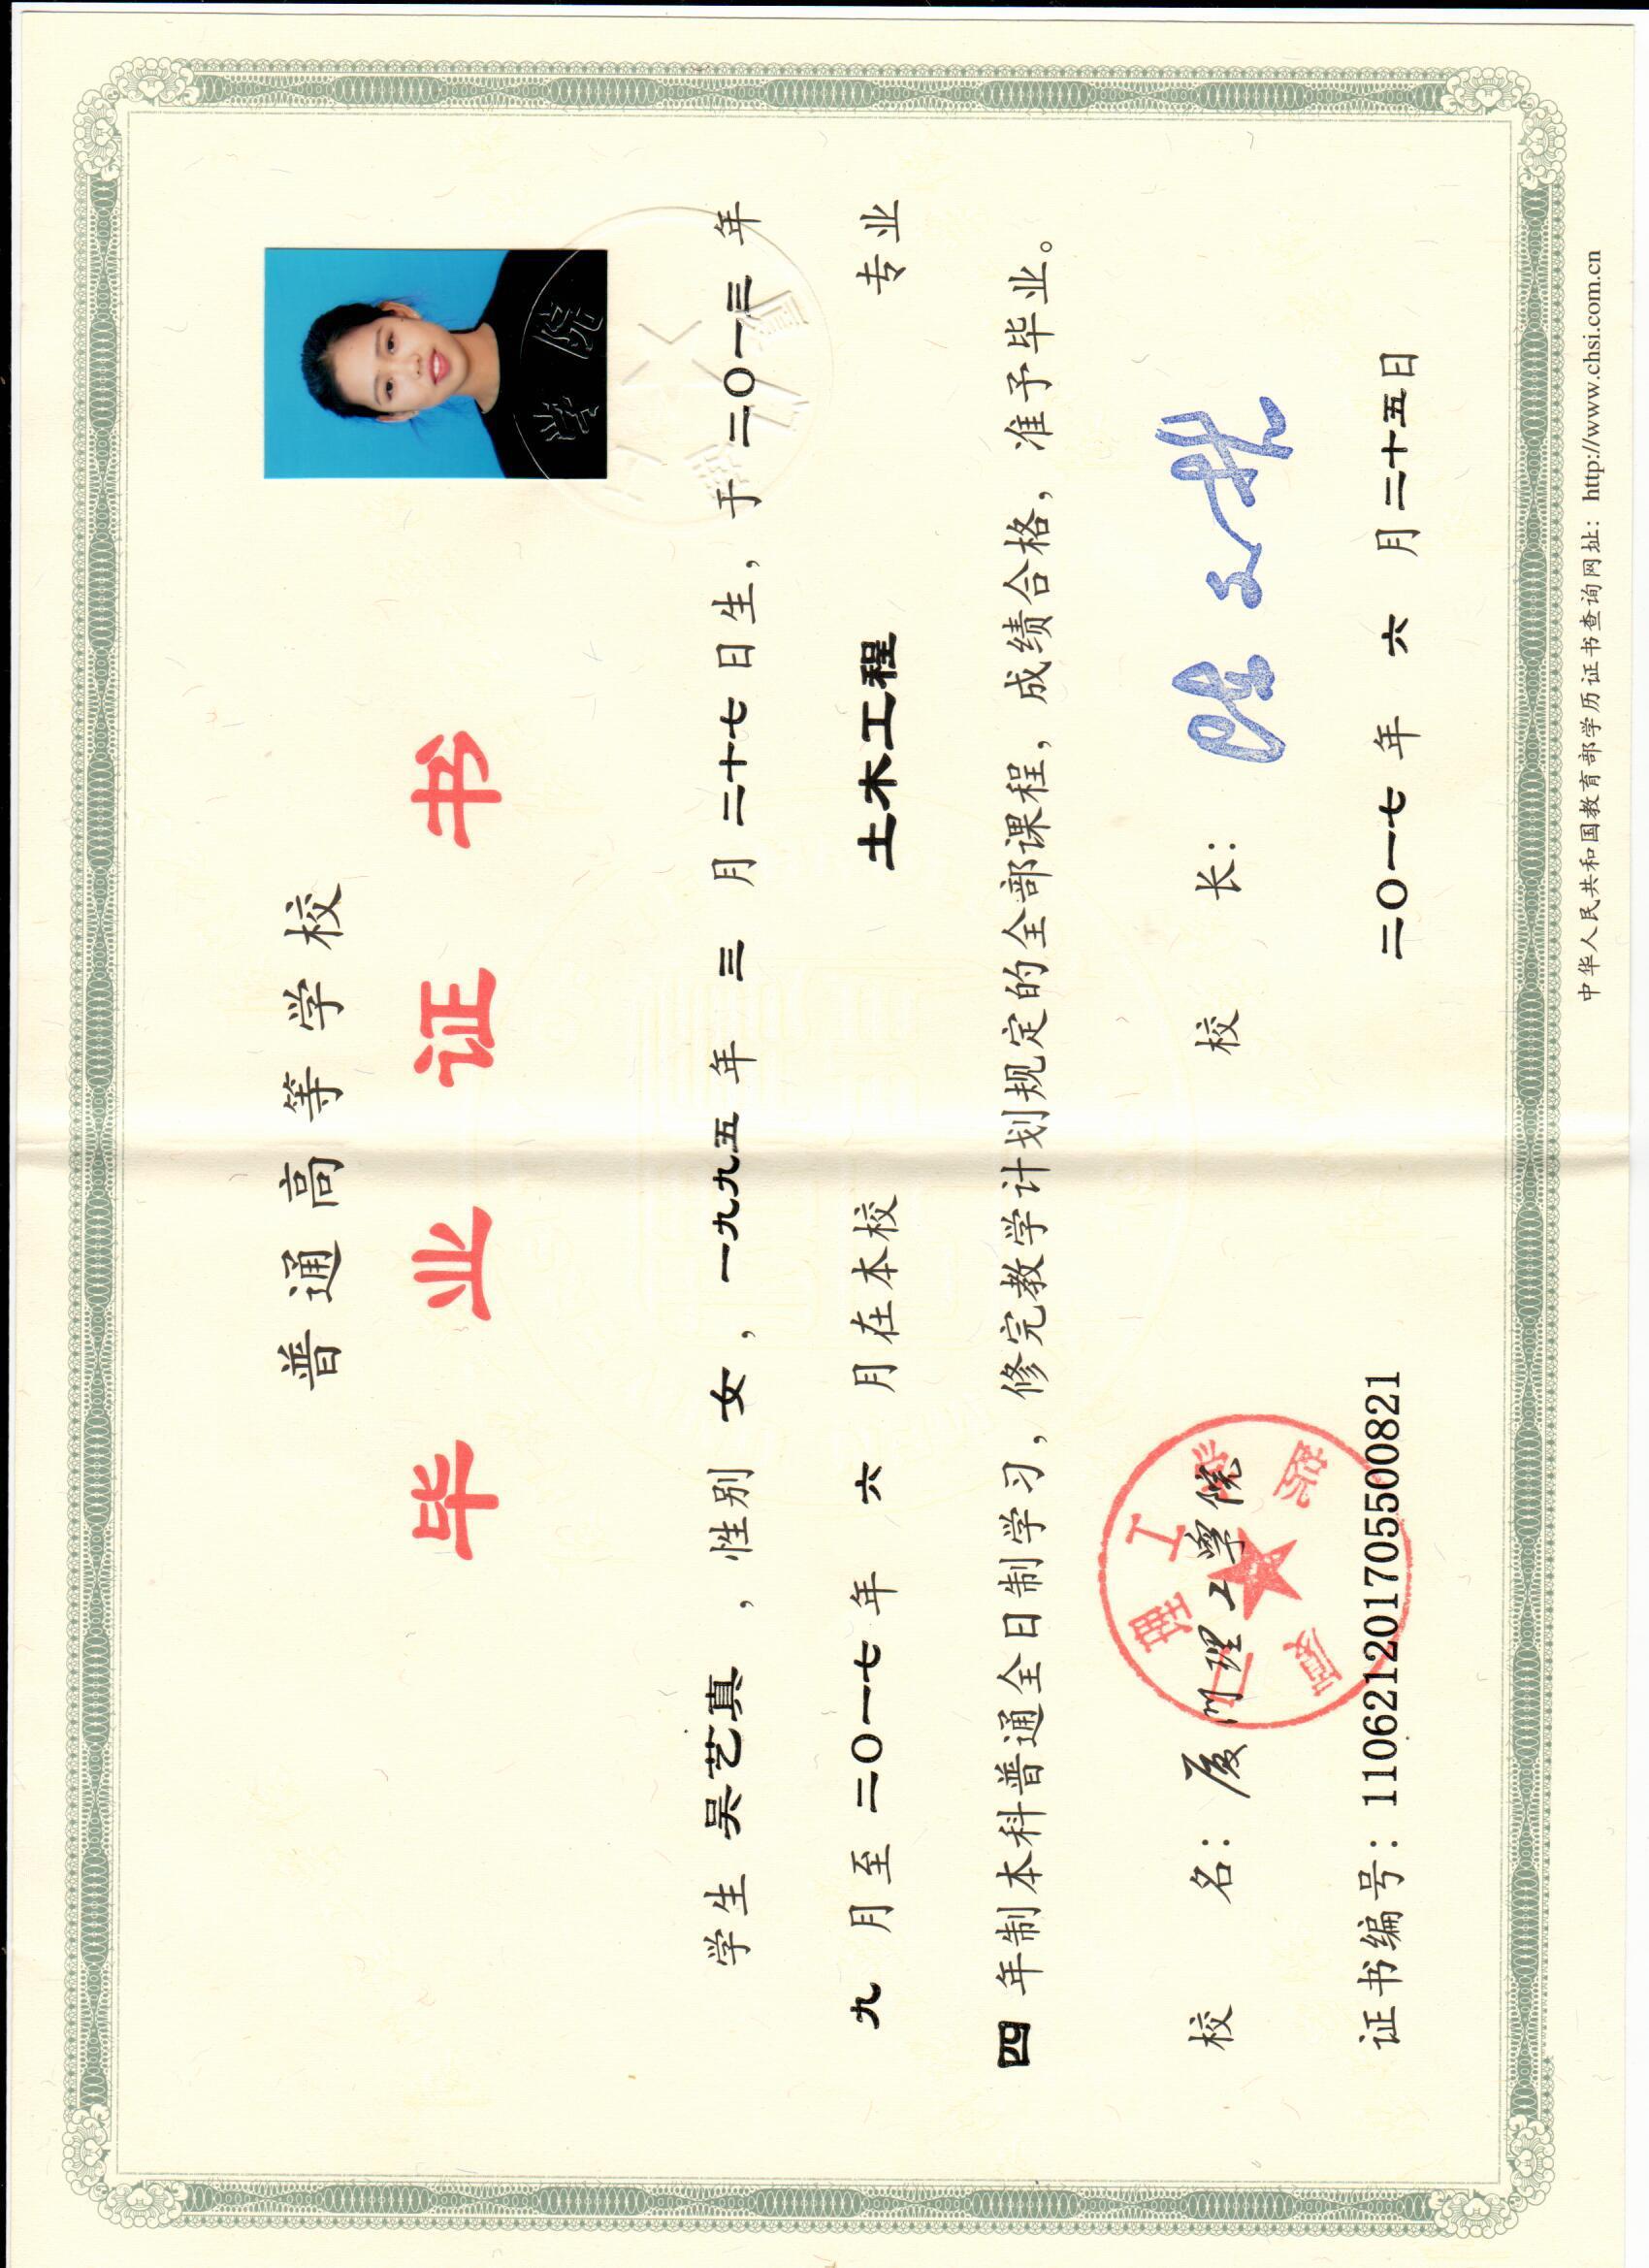 普通高等学校
毕业证书
学生 吴艺真 ，性别 女，一九九五 年 三 月 二十七 日生，于 二〇一三 年
九 月至 二〇一七 年 六 月在本校 土木工程 专业
四 年制本科普通全日制学习，修完教学计划规定的全部课程，成绩合格，准予毕业。
校 名：厦门理工学院 校 长：
厦门理工学院
证书编号：110621201705500821 二〇一七 年 六 月 二十五日
中华人民共和国教育部学历证书查询网址：http://www.chsi.com.cn